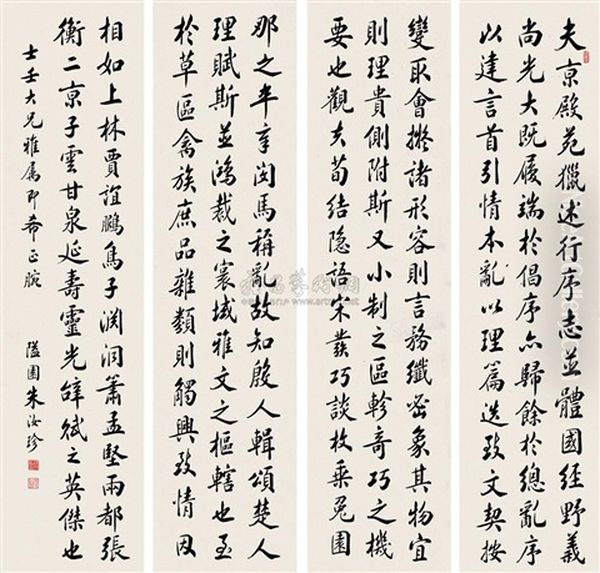 夫京殿苑獵述行序志並體國經野義
尚光大既履端於倡序亦歸餘於總亂序
以建言首引情本亂以理篇迭致文契按
變取會擬諸形容則言務纖密象其物宜
則理貴側附斯又小制之區畛奇巧之機
要也觀夫荀結隱語宋發巧談枚乘兔園
那之卒章閔馬稱亂故知殷人輯頌楚人
理賦斯並鴻裁之寰域雅文之樞轄也至
於草區禽族庶品雜類則觸興致情因
相如上林賈誼鵩鳥子淵洞簫孟堅兩都張
衡二京子雲甘泉延壽靈光辭賦之英傑也
士壬大兄雅屬即希正腕
隘園朱汝珍